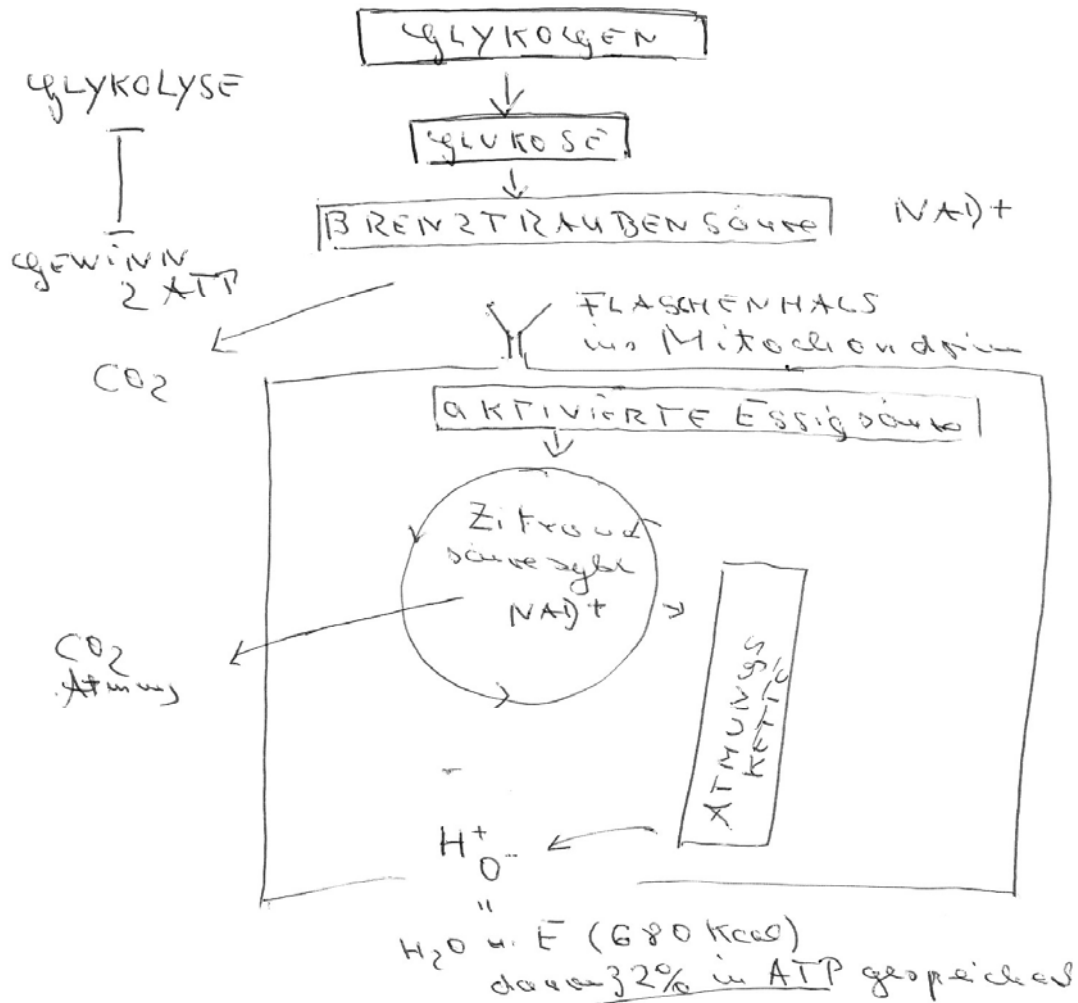 GLYKOLGEN
GLYKOLYSE
GLUKOSE
BRENZTRAUBENSäure
NAD+
GEWiNN
2 ATP
FLASCHENHALS
ins Mitochondrium
CO2
aKTIViERTE Essigsäure
Zitronen
säurezyklus
NAD+
CO2
Atmung
ATMUNGS
KETTE
H+
O-
"
H2O u. E (680 Kcal)
davon 32% in ATP gespeichert